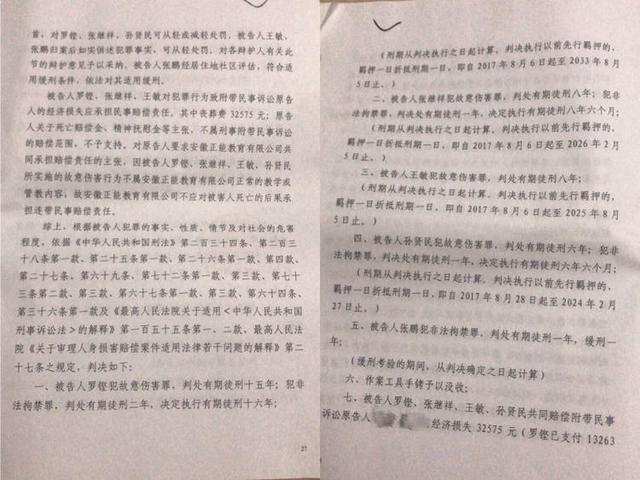 首，对罗铿、张继祥、孙贤民可从轻或减轻处罚。被告人王敏、
张鹏归案后如实供述犯罪事实，可从轻处罚。对各辩护人有关此
节的辩护意见予以采纳。被告人张鹏经居住地社区评估，符合适
用缓刑条件，依法对其适用缓刑。
被告人罗铿、张继祥、王敏对犯罪行为致附带民事诉讼原告
人的经济损失应承担民事赔偿责任。其中丧葬费 32575 元；原告
人关于死亡赔偿金、精神抚慰金等主张，不属刑事附带民事诉讼
的赔偿范围，不予支持。对原告人要求安徽正能教育有限公司共
同承担赔偿责任的主张，因被告人罗铿、张继祥、王敏、孙贤民
所实施的故意伤害行为不属安徽正能教育有限公司正常的教学或
管教内容，故安徽正能教育有限公司不应对被害人死亡的后果承
担连带民事赔偿责任。
综上，根据被告人犯罪的事实、性质、情节及对社会的危害
程度，依据《中华人民共和国刑法》第二百三十四条、第二百三
十八条第一款、第二十五条第一款、第二十六条第一款、第四款、
第二十七条、第六十九条、第七十二条第一款、第三款、第七十
三条第二款、第三款、第六十七条第一款、第三款、第六十四条、
第三十六条第一款及《最高人民法院关于适用＜中华人民共和国
刑事诉讼法＞的解释》第一百五十五条第一、二款、最高人民法
院《关于审理人身损害赔偿案件适用法律若干问题的解释》第二
十七条之规定，判决如下：
一、被告人罗铿犯故意伤害罪，判处有期徒刑十五年；犯非
法拘禁罪，判处有期徒刑二年，决定执行有期徒刑十六年；
27
（刑期从判决执行之日起计算，判决执行以前先行羁押的，
羁押一日折抵刑期一日，即自 2017 年 8 月 6 日起至 2033 年 8 月
5 日止。）
二、被告人张继祥犯故意伤害罪，判处有期徒刑八年；犯非
法拘禁罪，判处有期徒刑一年，决定执行有期徒刑八年六个月；
（刑期从判决执行之日起计算，判决执行以前先行羁押的，
羁押一日折抵刑期一日，即自 2017 年 8 月 6 日起至 2026 年 2 月
5 日止。）
三、被告人王敏犯故意伤害罪，判处有期徒刑八年；
（刑期从判决执行之日起计算，判决执行以前先行羁押的，
羁押一日折抵刑期一日，即自 2017 年 8 月 6 日起至 2025 年 8 月
5 日止。）
四、被告人孙贤民犯故意伤害罪，判处有期徒刑六年；犯非
法拘禁罪，判处有期徒刑一年，决定执行有期徒刑六年六个月；
（刑期从判决执行之日起计算，判决执行以前先行羁押的，
羁押一日折抵刑期一日，即自 2017 年 8 月 28 日起至 2024 年 2 月
27 日止。）
五、被告人张鹏犯非法拘禁罪，判处有期徒刑一年，缓刑一
年；
（缓刑考验的期间，从判决确定之日起计算）
六、作案工具手铐子以没收；
七、被告人罗铿、张继祥、王敏、孙贤民共同赔偿附带民事
诉讼原告人 经济损失 32575 元（罗铿已支付 13263